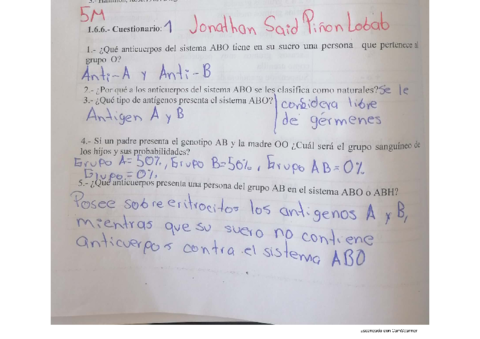 5M
1.6.6.- Cuestionario: 1 Jonathan Said Piñon Lobab
1.- ¿Qué anticuerpos del sistema ABO tiene en su suero una persona que pertenece a
grupo O?
Anti-A y Anti-B
2.- ¿Por qué a los anticuerpos del sistema ABO se les clasifica como naturales? Se le
3.- ¿Qué tipo de antígenos presenta el sistema ABO? considera libre
Antigen A y B de gérmenes
4.- Si un padre presenta el genotipo AB y la madre OO ¿Cuál será el grupo sanguíneo de
los hijos y sus probabilidades?
Grupo A= 50%, Grupo B=50%, Grupo AB=0%
Grupo=0%.
5.- ¿Qué anticuerpos presenta una persona del grupo AB en el sistema ABO o ABH?
Posee sobre eritrocitos los antigenos A y B,
mientras que su suero no contiene
anticuerpos contra el sistema ABO